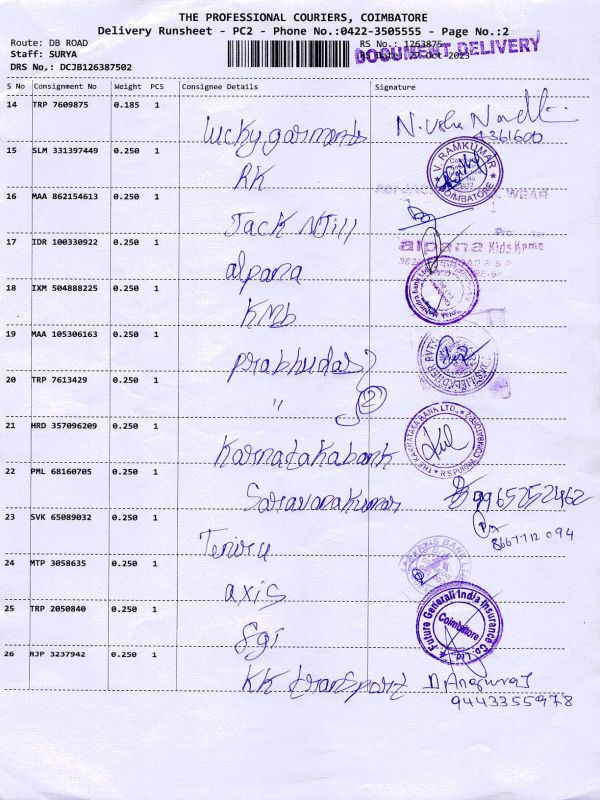 THE PROFESSIONAL COURIERS, COIMBATORE
Delivery Runsheet - PC2 - Phone No.:0422-3505555 - Page No.:2
Route: DB ROAD
Staff: SURYA
DRS No,: DCJB126387502
RS No.: 1263875
Date: 27-Oct-2023
DOCUMENT DELIVERY
S No Consignment No Weight PCS Consignee Details Signature
14 TRP 7609875 0.185 1
lucky garments
4361600
15 SLM 331397449 0.250 1
RK
V. RAMKUMAR
COIMBATORE
16 MAA 862154613 0.250 1
Jack N Jill
WEAR
17 IDR 100330922 0.250 1
alpana
alpana Kids Kemp
18 IXM 504888225 0.250 1
KMb
19 MAA 105306163 0.250 1
prabhudas
20 TRP 7613429 0.250 1
" 2
21 HRD 357096209 0.250 1
Karnatakabank
THE KARNATAKA BANK LTD.,
COIMBATORE-2
22 PML 68160705 0.250 1
Saravanakumar
9965252462
23 SVK 65089032 0.250 1
8667712094
24 MTP 3058635 0.250 1
axis
AXIS BANK
25 TRP 2050840 0.250 1
fgi
Future Generali India Insurance Co.
Coimbatore
26 RJP 3237942 0.250 1
KK transport
9443355978